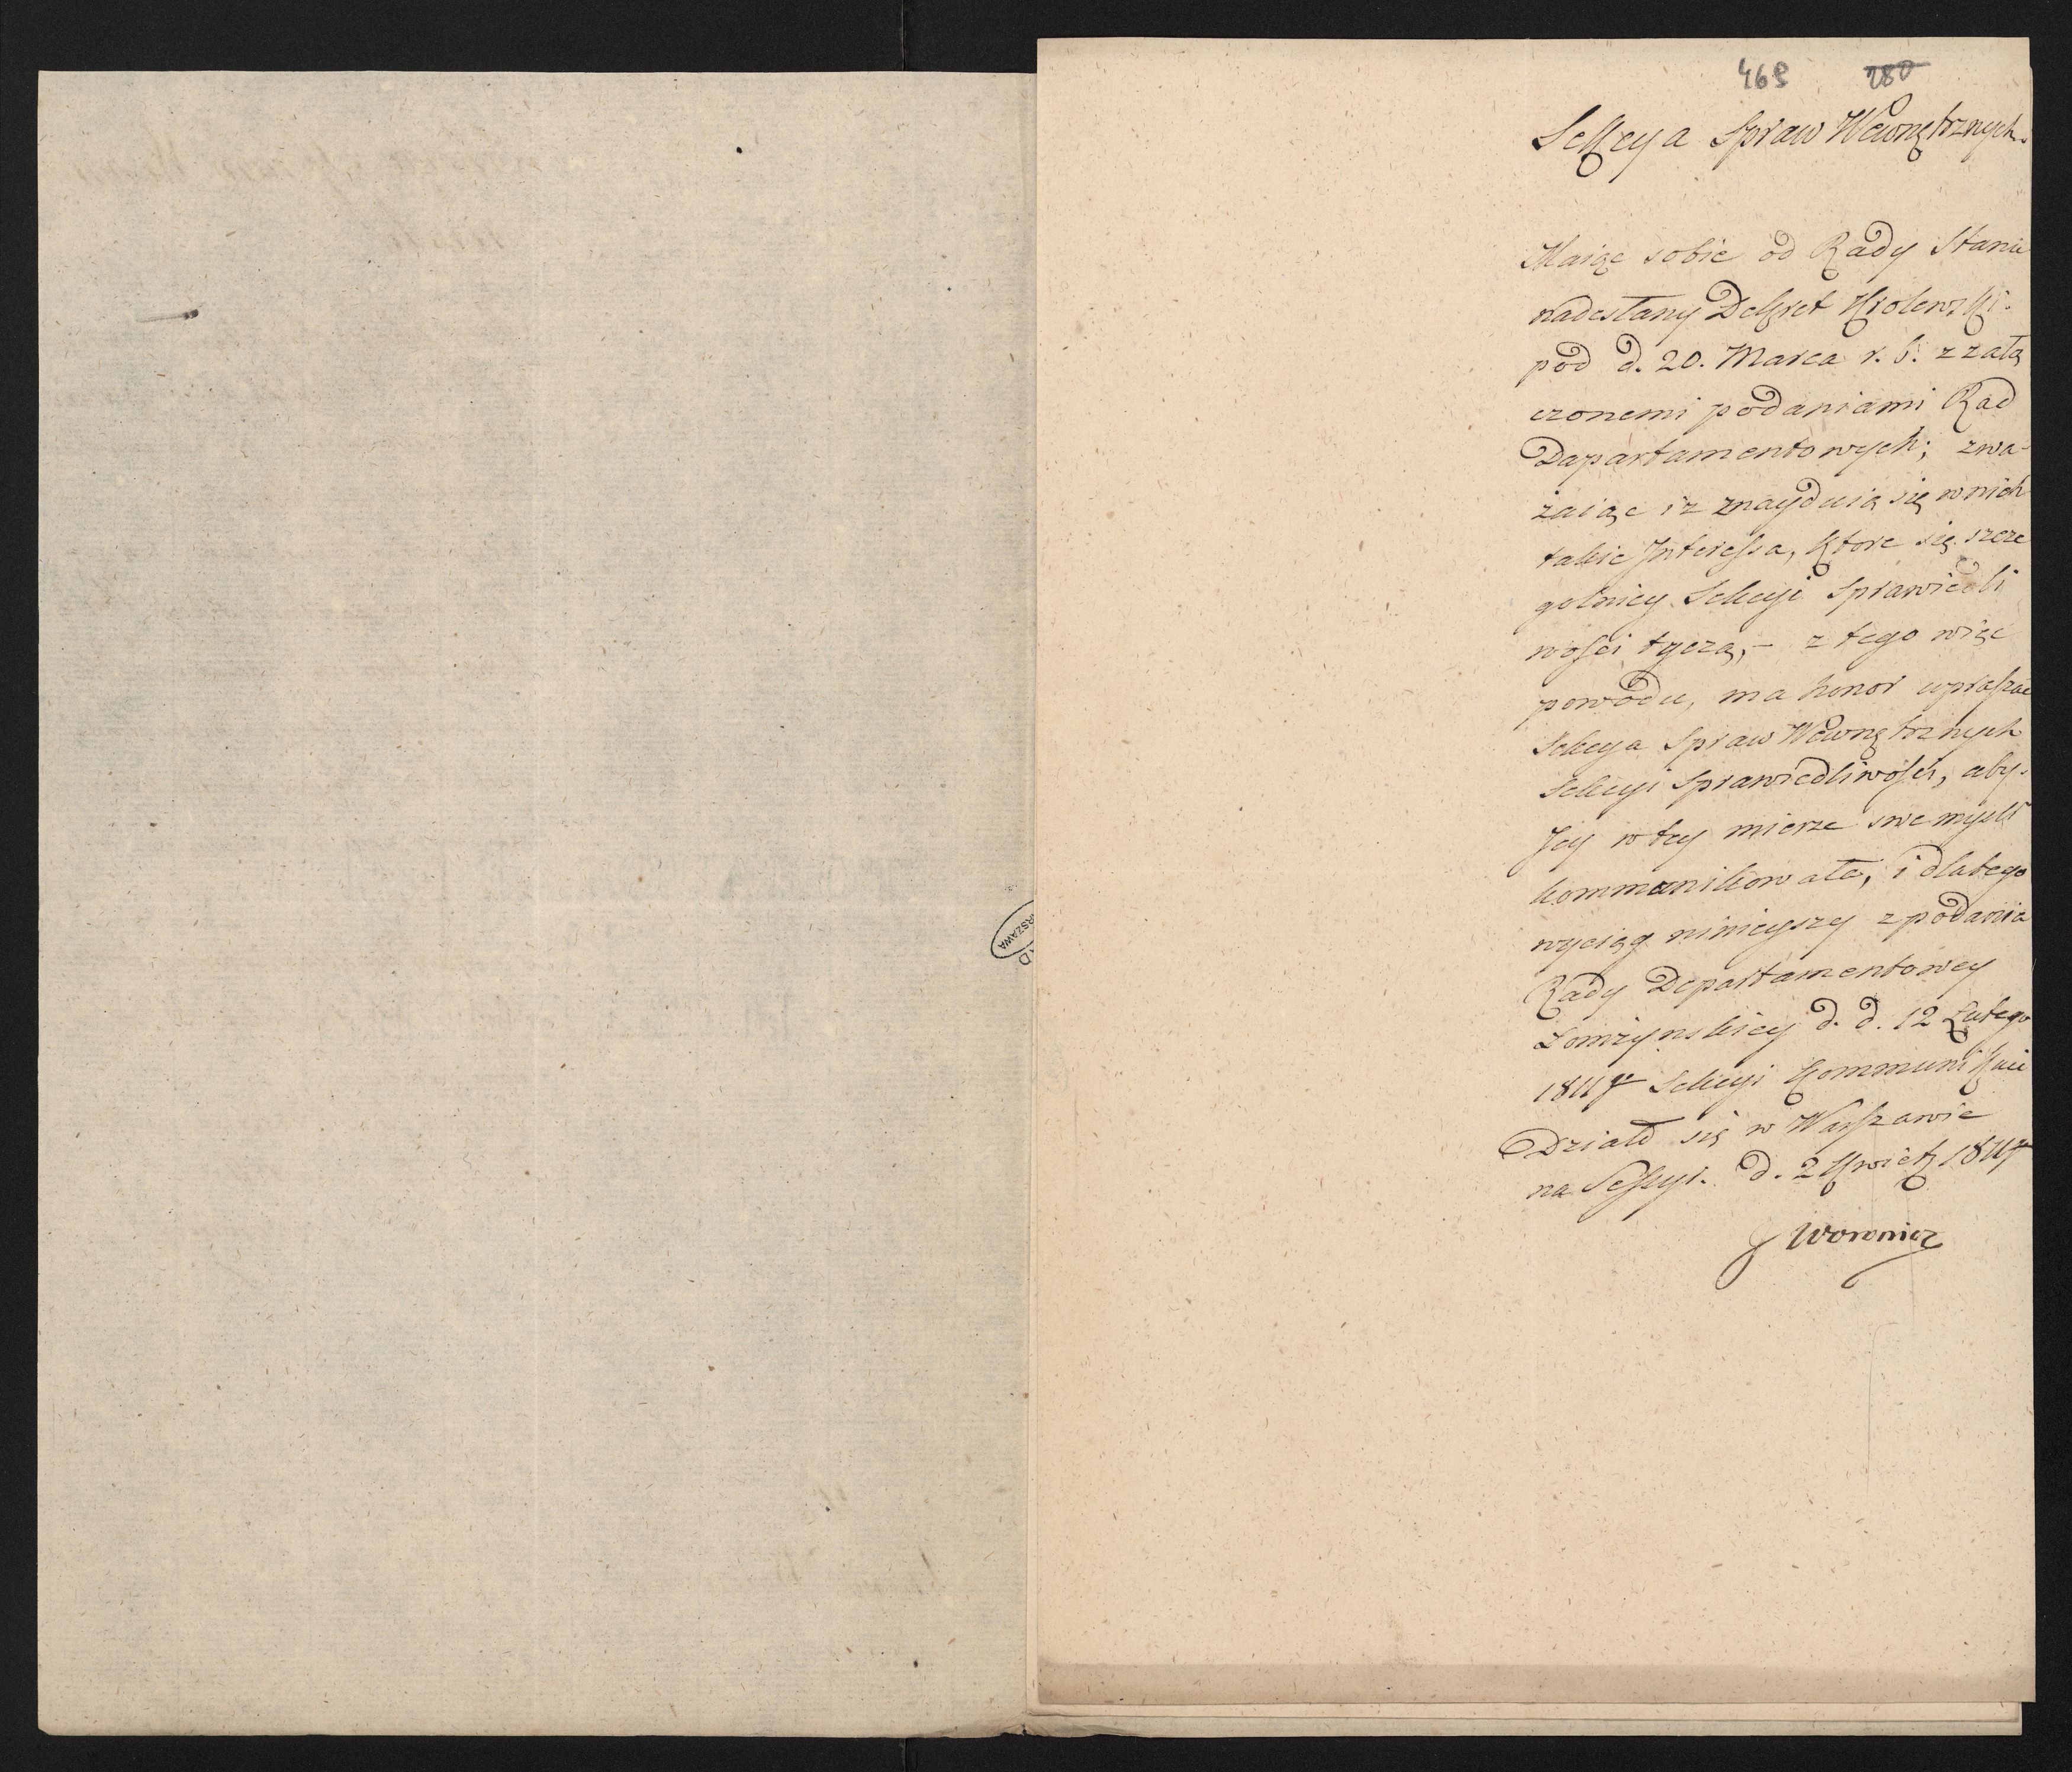 469 280
Sekcya Spraw Wewnętrznych.
Maiąc sobie od Rady Stanu
nadesłany Dekret Krolewski.
pod d. 20. Marca r. b. z załą
czonemi podaniami Rad
Dapartamentowych; zwa-
żaiąc iz znayduią się w nich
takie Interessa, ktore się szcze
golniey Sekcyi Sprawiedli
wości tyczą,- z tego więc
powodu, ma honor upraszać
Sekcya Spraw Wewnętrznych
Sekcyi Sprawiedliwości, aby
Jey w tey mierze swe myśli
kommunikowała, i dlatego
wyciąg ninieyszy z podania
Rady Departamentowey
Łomżynskiey d. d. 12 Lutego
1811 r Sekcyi kommunikuie
Działo się w Warszawie
na Sessyi. d. 2 Kwiet. 1811 r
J Woronicz
RSZAWA
AD